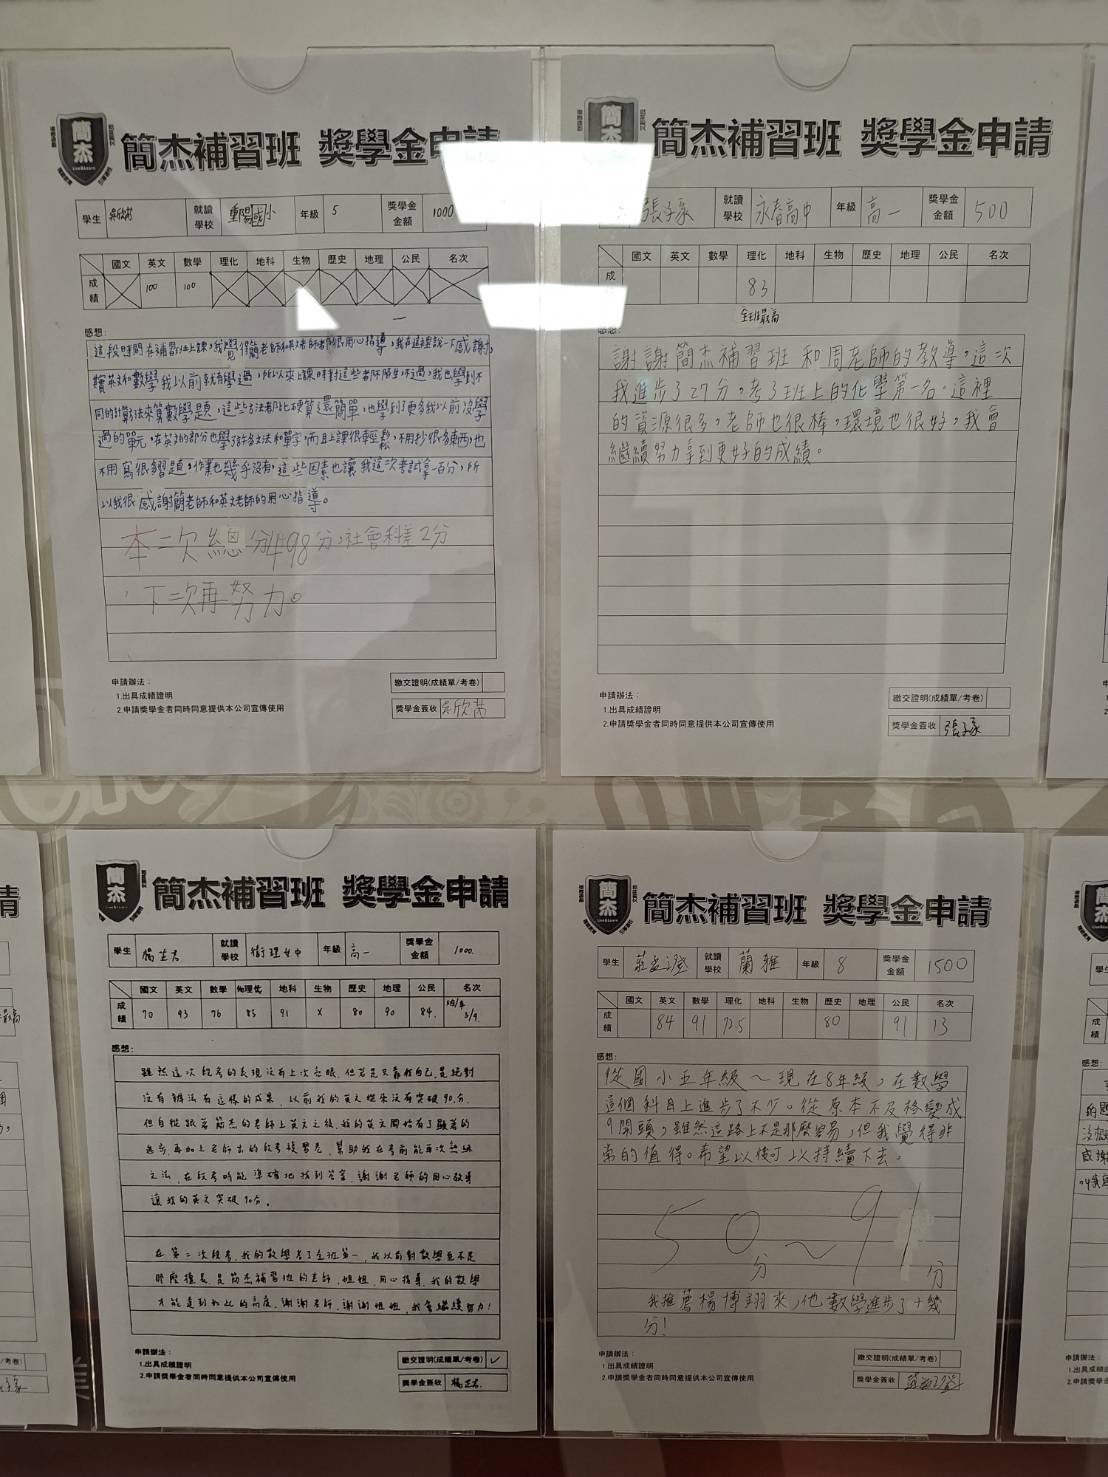 簡杰補習班 獎學金申請
學生 就讀學校 重陽國小 年級 5 獎學金金額 1000
國文 英文 數學 理化 地科 生物 歷史 地理 公民 名次
成績 100 100
感想:
這段時間在補習班上課,我覺得簡老師和英文老師都很用心指導,我在這裡說一下感謝,
其實英文和數學我以前就有學過,所以來上課時對這些都不陌生,不過,我也學到不
同的計算方法來算數學題,這些方法都比硬算還簡單,也學到了更多我以前沒學
過的單元,在英文的部分也學了許多文法和單字,而且上課很輕鬆,不用抄很多東西,也
不用寫很多習題,作業也幾乎沒有,這些因素也讓我這次考試拿一百分,所
以我很感謝簡老師和英文老師的用心指導。
本二次總分498分,社會科差2分
下次再努力。
申請辦法:
1.出具成績證明
2.申請獎學金者同時同意提供本公司宣傳使用
繳交證明(成績單/考卷)
獎學金簽收
簡杰補習班 獎學金申請
就讀學校 永春高中 年級 高一 獎學金金額 500
國文 英文 數學 理化 地科 生物 歷史 地理 公民 名次
成績 83
全班最高
感想:
謝謝簡杰補習班和周老師的教導。這次
我進步了27分。考了班上的化學第一名。這裡
的資源很多,老師也很棒,環境也很好,我會
繼續努力拿到更好的成績。
申請辦法:
1.出具成績證明
2.申請獎學金者同時同意提供本公司宣傳使用
繳交證明(成績單/考卷)
獎學金簽收
簡杰補習班 獎學金申請
學生 就讀學校 衛理女中 年級 高一 獎學金金額 1000.
國文 英文 數學 物理化 地科 生物 歷史 地理 公民 名次
成績 70 93 76 85 91 X 80 90 84.
感想:
雖然這次段考的表現沒有上次亮眼,但若是只靠我自己,是絕對
沒有辦法有這樣的成果,以前我的英文從來沒有突破90分,
但自從跟著簡杰的老師上英文之後,我的英文開始有了顯著的
進步,再加上老師出的段考複習卷,幫助我在考前能再次熟練
文法,在段考時能準確地找到答案,謝謝老師的用心教導
讓我的英文突破90分。
在第二次段考,我的數學考了全班第一,我以前對數學並不是
那麼擅長,是簡杰補習班的老師,姐姐,用心指導,我的數學
才能達到如此的高度,謝謝老師,謝謝姐姐,我會繼續努力!
申請辦法:
1.出具成績證明
2.申請獎學金者同時同意提供本公司宣傳使用
繳交證明(成績單/考卷) ✓
獎學金簽收
簡杰補習班 獎學金申請
學生 就讀學校 蘭雅 年級 8 獎學金金額 1500
國文 英文 數學 理化 地科 生物 歷史 地理 公民 名次
成績 84 91 92.5 80 91 13
感想:
從國小五年級~現在8年級,在數學
這個科目上進步了不少。從原本不及格變成
9開頭,雖然這路上不是那麼容易,但我覺得非
常的值得。希望以後可以持續下去。
50分~91分
我推薦楊博翔來,他數學進步了十幾
分!
申請辦法:
1.出具成績證明
2.申請獎學金者同時同意提供本公司宣傳使用
繳交證明(成績單/考卷)
獎學金簽收